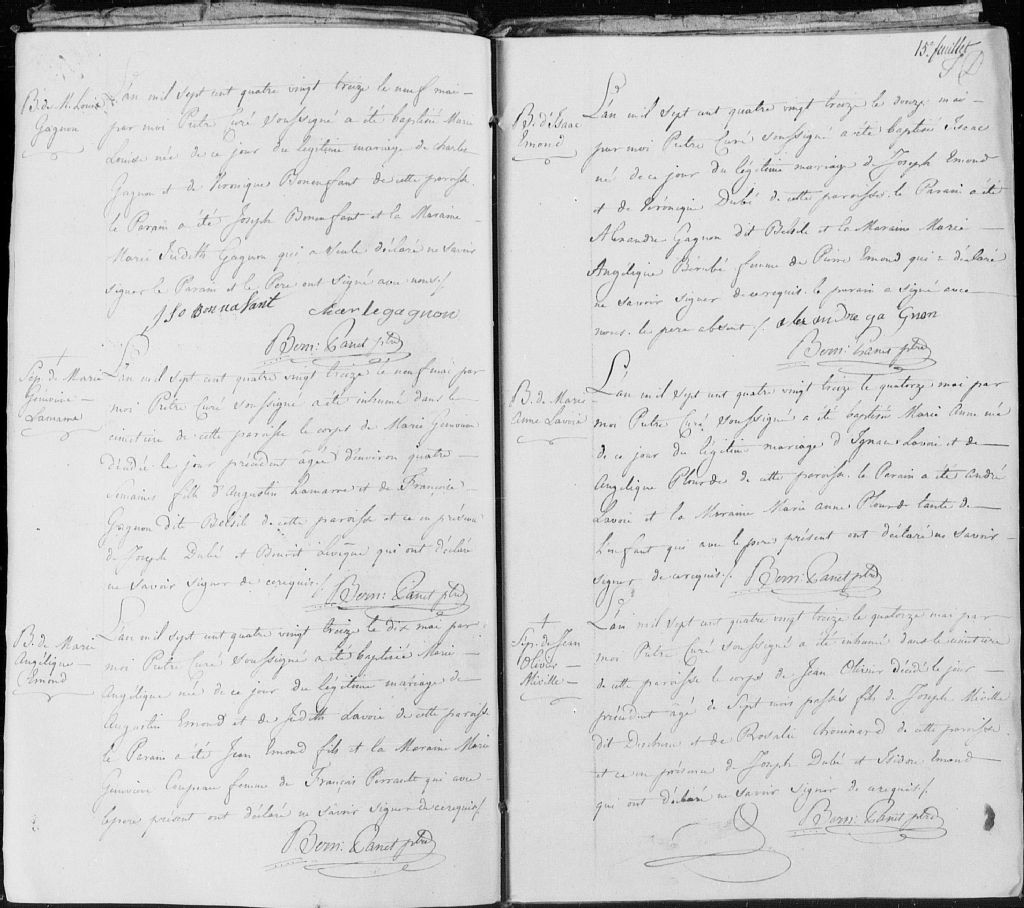 B. de M. Louise
Gagnon
L'an mil sept cent quatre vingt treize le neuf mai
par moi Prêtre Curé soussigné a été baptisée Marie
Louise née de ce jour du légitime mariage de charles
Gagnon et de Véronique Bonenfant de cette paroisse
le Parain a été Joseph Bonenfant et la Maraine
Marie Judeth Gagnon qui a seule déclaré ne savoir
signer le Parain et le Pere ont signé avec nous./.
Jso Bonnafant charle gagnon
Bern: Panet ptre
+
Sep. de Marie
Genevieve
Lamarre
L'an mil sept cent quatre vingt treize le neuf mai par
moi Prêtre Curé soussigné a été inhumé dans le
cimetière de cette paroisse le corps de Marie Genevieve
décédée le jour précédent âgée d'environ quatre
semaines fille d'Augustin Lamarre et de Françoise
Gagnon dit Belsil de cette paroisse et ce en présence
de Joseph Dubé et Benoit Lévêque qui ont déclaré
ne savoir signer de ce requis./.
Bern: Panet ptre
B. de Marie
Angelique
Emond
L'an mil sept cent quatre vingt treize le dix mai par
moi Prêtre Curé soussigné a été baptisée Marie
Angelique née de ce jour du légitime mariage de
Augustin Emond et de Judith Lavoie de cette paroisse
le Parain a été Jean Emond fils et la Maraine Marie
Genevieve Coupeau femme de François Perrault qui avec
le pere présent ont déclaré ne savoir signer de ce requis/.
Bern: Panet ptre
15e. feuillet
B. d'Isaac
Emond
L'an mil sept cent quatre vingt treize le douze mai
par moi Prêtre Curé soussigné a été baptisé Isaac
né de ce jour du légitime mariage de Joseph Emond
et de Véronique Dubé de cette paroisse. le Parain a été
Alexandre Gagnon dit Belsile et la Maraine Marie
Angélique Bérubé femme de Pierre Emond qui a déclaré
ne savoir signer de ce requis. le parain a signé avec
nous. le pere absent/. alexandre gagnon
Bern: Panet ptre
B. de Marie
Anne Lavoie
L'an mil sept cent quatre vingt treize le quatorze mai par
moi Prêtre Curé soussigné a été baptisée Marie Anne née
de ce jour du légitime mariage d'Ignace Lavoie et de
Angélique Plourde de cette paroisse. le Parain a été André
Lavoie et la Maraine Marie anne Plourde tante de
L'enfant qui avec le pere présent ont déclaré ne savoir
signer de ce requis/.
Bern: Panet ptre
+
Sép. de Jean
Olivier
Miville
L'an mil sept cent quatre vingt treize le quatorze mai par
moi Prêtre Curé soussigné a été inhumé dans le cimetiere
de cette paroisse le corps de Jean Olivier décédé le jour
précédent âgé de sept mois passés fils de Joseph Miville
dit Dechene et de Rosalie chouinard de cette paroisse.
et ce en présence de Joseph Dubé et Isidore Emond
qui ont déclaré ne savoir signer de ce requis/.
Bern: Panet ptre